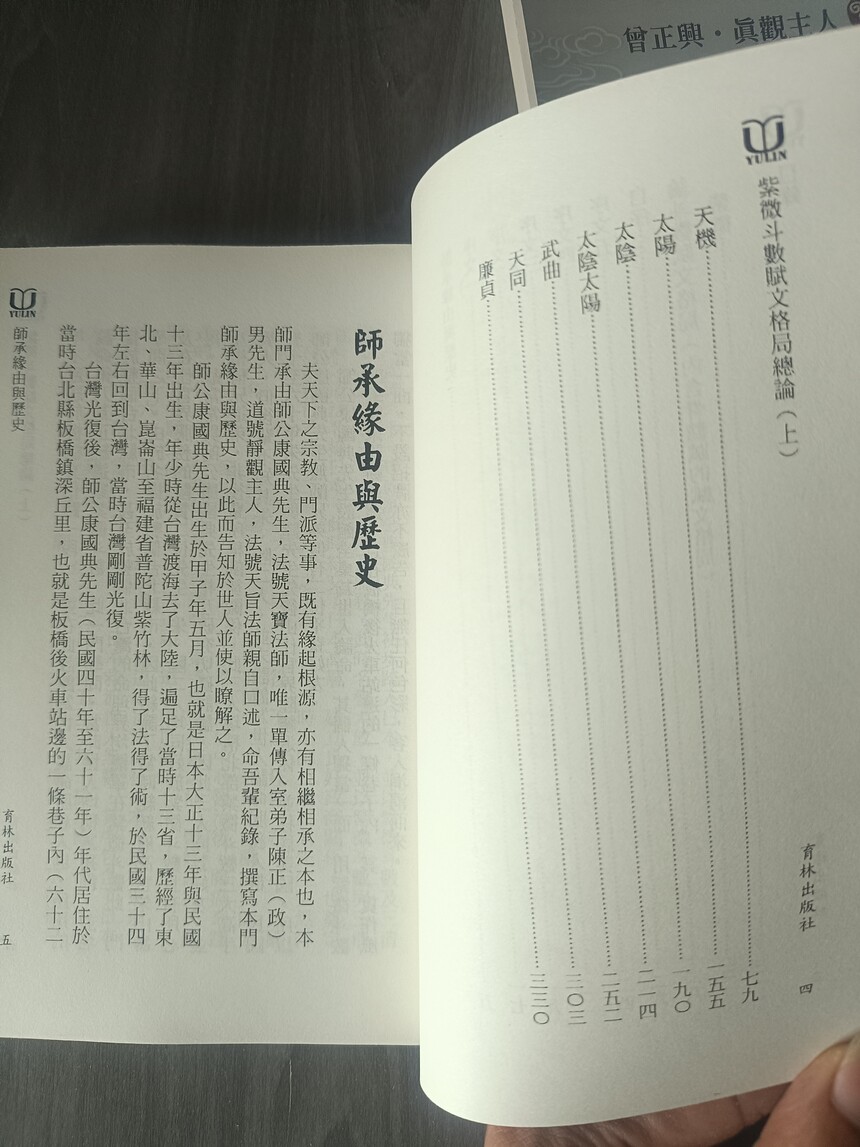 曾正興・真觀主人
YULIN
紫微斗數賦文格局總論（上）
育林出版社 四
天機……七九
太陽……一五五
太陰……一九〇
太陰太陽……二一四
武曲……二五二
天同……三〇三
廉貞……三三〇
師承緣由與歷史
夫天下之宗教、門派等事，既有緣起根源，亦有相繼相承之本也，本
師門承由師公康國典先生，法號天寶法師，唯一單傳入室弟子陳正（政）
男先生，道號靜觀主人，法號天旨法師親自口述，命吾輩紀錄，撰寫本門
師承緣由與歷史，以此而告知於世人並使以瞭解之。
師公康國典先生出生於甲子年五月，也就是日本大正十三年與民國
十三年出生，年少時從台灣渡海去了大陸，遍足了當時十三省，歷經了東
北、華山、崑崙山至福建省普陀山紫竹林，得了法得了術，於民國三十四
年左右回到台灣，當時台灣剛剛光復。
台灣光復後，師公康國典先生（民國四十年至六十一年）年代居住於
當時台北縣板橋鎮深丘里，也就是板橋後火車站邊的一條巷子內（六十二
YULIN
師承緣由與歷史
育林出版社 五